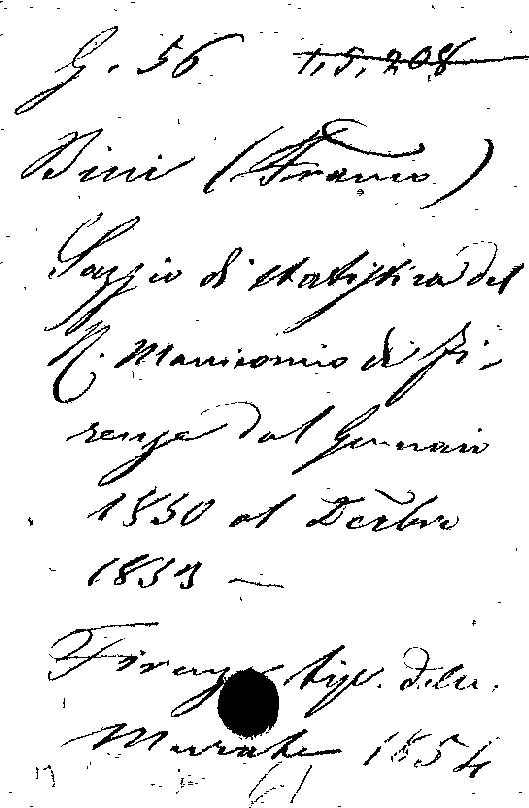 G. 56 1, 9, 208
Bini (Franco)
Saggio di statistica del
R. Manicomio di Fi-
renze dal Gennaio
1850 al Decbre
1853 —
Firenze tip. delle
Murate 1854